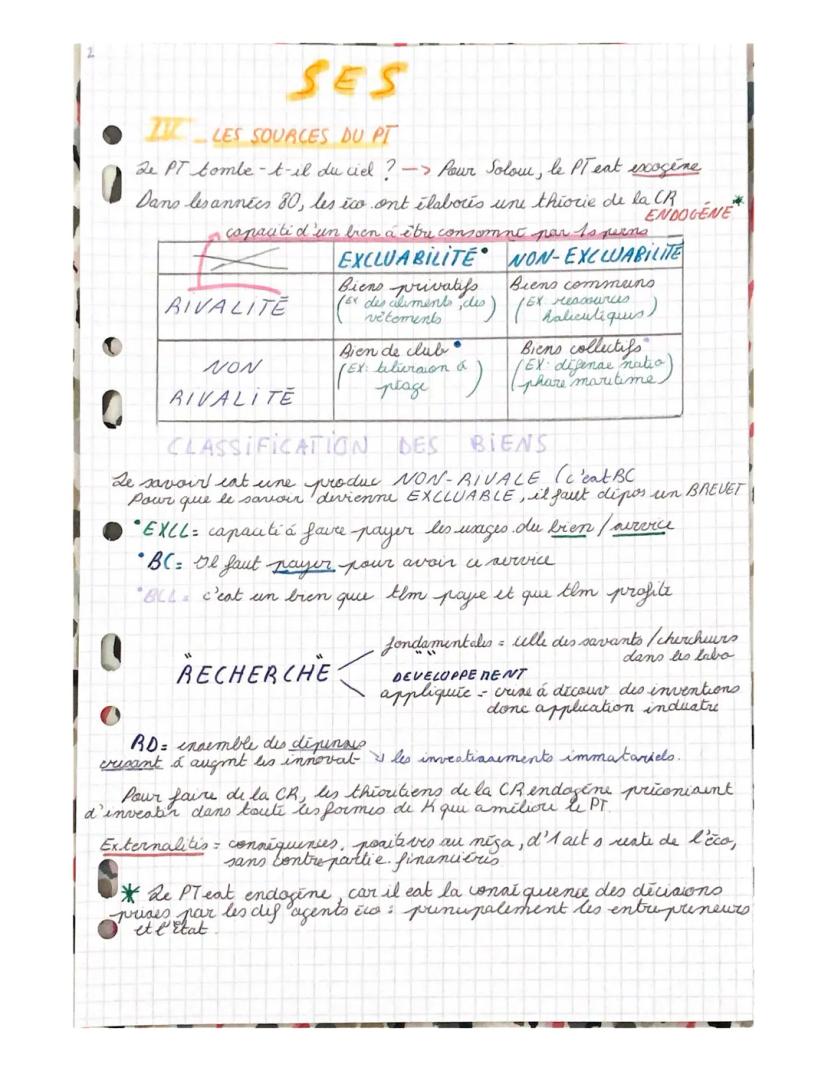 2
SES
IV - LES SOURCES DU PT
Le PT tombe-t-il du ciel ? —> Pour Solow, le PT est exogène
Dans les années 80, les éco ont élaborés une théorie de la CR
ENDOGÈNE *
capacité d'un bien à être consommé par 1s pers
EXCLUABILITÉ • NON-EXCLUABILITÉ
RIVALITÉ
Biens privatifs
(Ex des aliments, des
vêtements)
Biens communs
(EX ressources
halieutiques)
NON
RIVALITÉ
Bien de club •
(EX: télévision à
péage)
Biens collectifs •
(EX: défense natio
phare maritime)
CLASSIFICATION DES BIENS
Le savoir est une produc NON-RIVALE (c'est BC
Pour que le savoir devienne EXCLUABLE, il faut dépos un BREVET
• EXCL = capacité à faire payer les usages du bien / service
• BC = Il faut payer pour avoir ce service
• BCL = c'est un bien que tlm paye et que tlm profite
fondamentales = celle des savants / chercheurs
dans les labo
"RECHERCHE"
" " DEVELOPPEMENT
appliquée - vise à découv des inventions
donc application industre
RD = ensemble des dépenses
visant à augmt les innovat- ↘ les investissements immatériels.
Pour faire de la CR, les théoriciens de la CR endogène préconisent
d'investir dans toute les formes de K qui améliore le PT.
Externalités = conséquences, positives au néga, d'1 act s reste de l'éco,
sans contrepartie financières
* Le PT est endogène, car il est la conséquence des décisions
prises par les dif agents éco : principalement les entrepreneurs
et l'état.